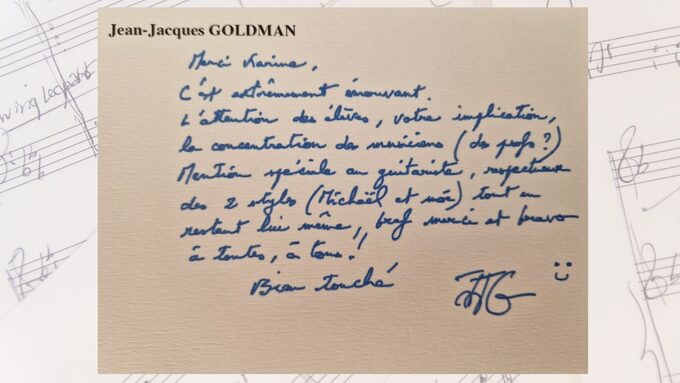 Jean-Jacques GOLDMAN
Merci Karine,
C'est extrêmement émouvant.
L'attention des élèves, votre implication,
la concentration des musiciens (des profs ?)
Mention spéciale au guitariste, respectueux
des 2 styles (Michaël et moi) tout en
restant lui même, bref merci et bravo
à toutes, à tous !
Bien touché
JJG :)